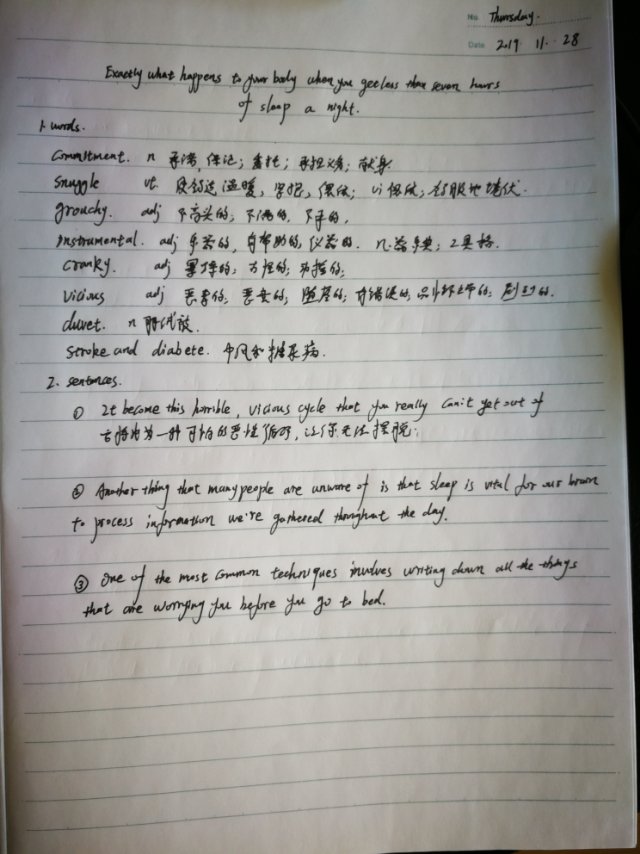 No Thursday.
Date 2019. 11. 28
Exactly what happens to your body when you get less than seven hours
of sleep a night.
1. words.
Commitment. n 承诺, 保证; 委托; 承担义务; 献身
Snuggle vt. 偎依; vi 偎依; 舒服地
grouchy. adj 不高兴的; 不满的,
instrumental. adj 乐器的, 有帮助的, 仪器的. n. 器乐曲; 工具格.
cranky. adj 暴躁的;
Vicious adj 恶毒的; 恶意的; 堕落的; 有错误的; 品性不端的; 剧烈的.
duvet. n 羽绒被.
Stroke and diabete. 中风和糖尿病.
2. sentences.
① It become this horrible, vicious cycle that you really can't get out of
一种可怕的恶性循环, 让你无法摆脱.
② Another thing that many people are unware of is that sleep is vital for our brain
to process information we're gathered throughout the day.
③ One of the most common techniques involves writing down all the things
that are worrying you before you go to bed.